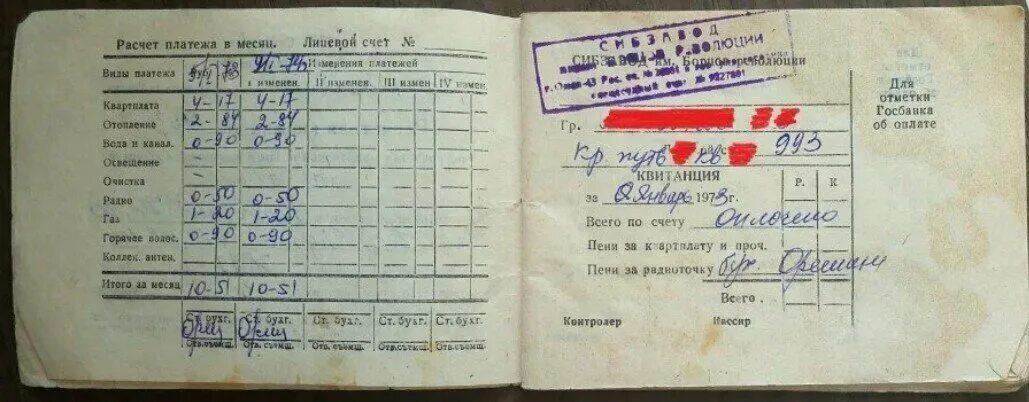 Расчет платежа в месяц. Лицевой счет №
Виды платежа
Измерения платежей
I изменен. II изменен. III измен IV измен.
Квартплата 4-17 4-17
Отопление 2-84 2-84
Вода и канал. 0-90 0-90
Освещение –
Очистка –
Радио 0-50 0-50
Газ 1-20 1-20
Горячее водос. 0-90 0-90
Коллек. антен. –
Итого за месяц 10-51 10-51
Ст. бухг. Ст. бухг. Ст. бухг. Ст. бухг. Ст. бухг.
Отв.съемщ. Отв.съемщ. Отв.съемщ. Отв.съемщ. Отв.съемщ.
СИБЗАВОД
СИБЗАВОД им. Борцов революции
Для
отметки
Госбанка
об оплате
Гр.
Кр. путь кв 993
КВИТАНЦИЯ Р. К
за Январь 1973г.
Всего по счету оплочено
Пени за квартплату и проч.
Пени за радиоточку бух.
Всего .
Контролер Кассир